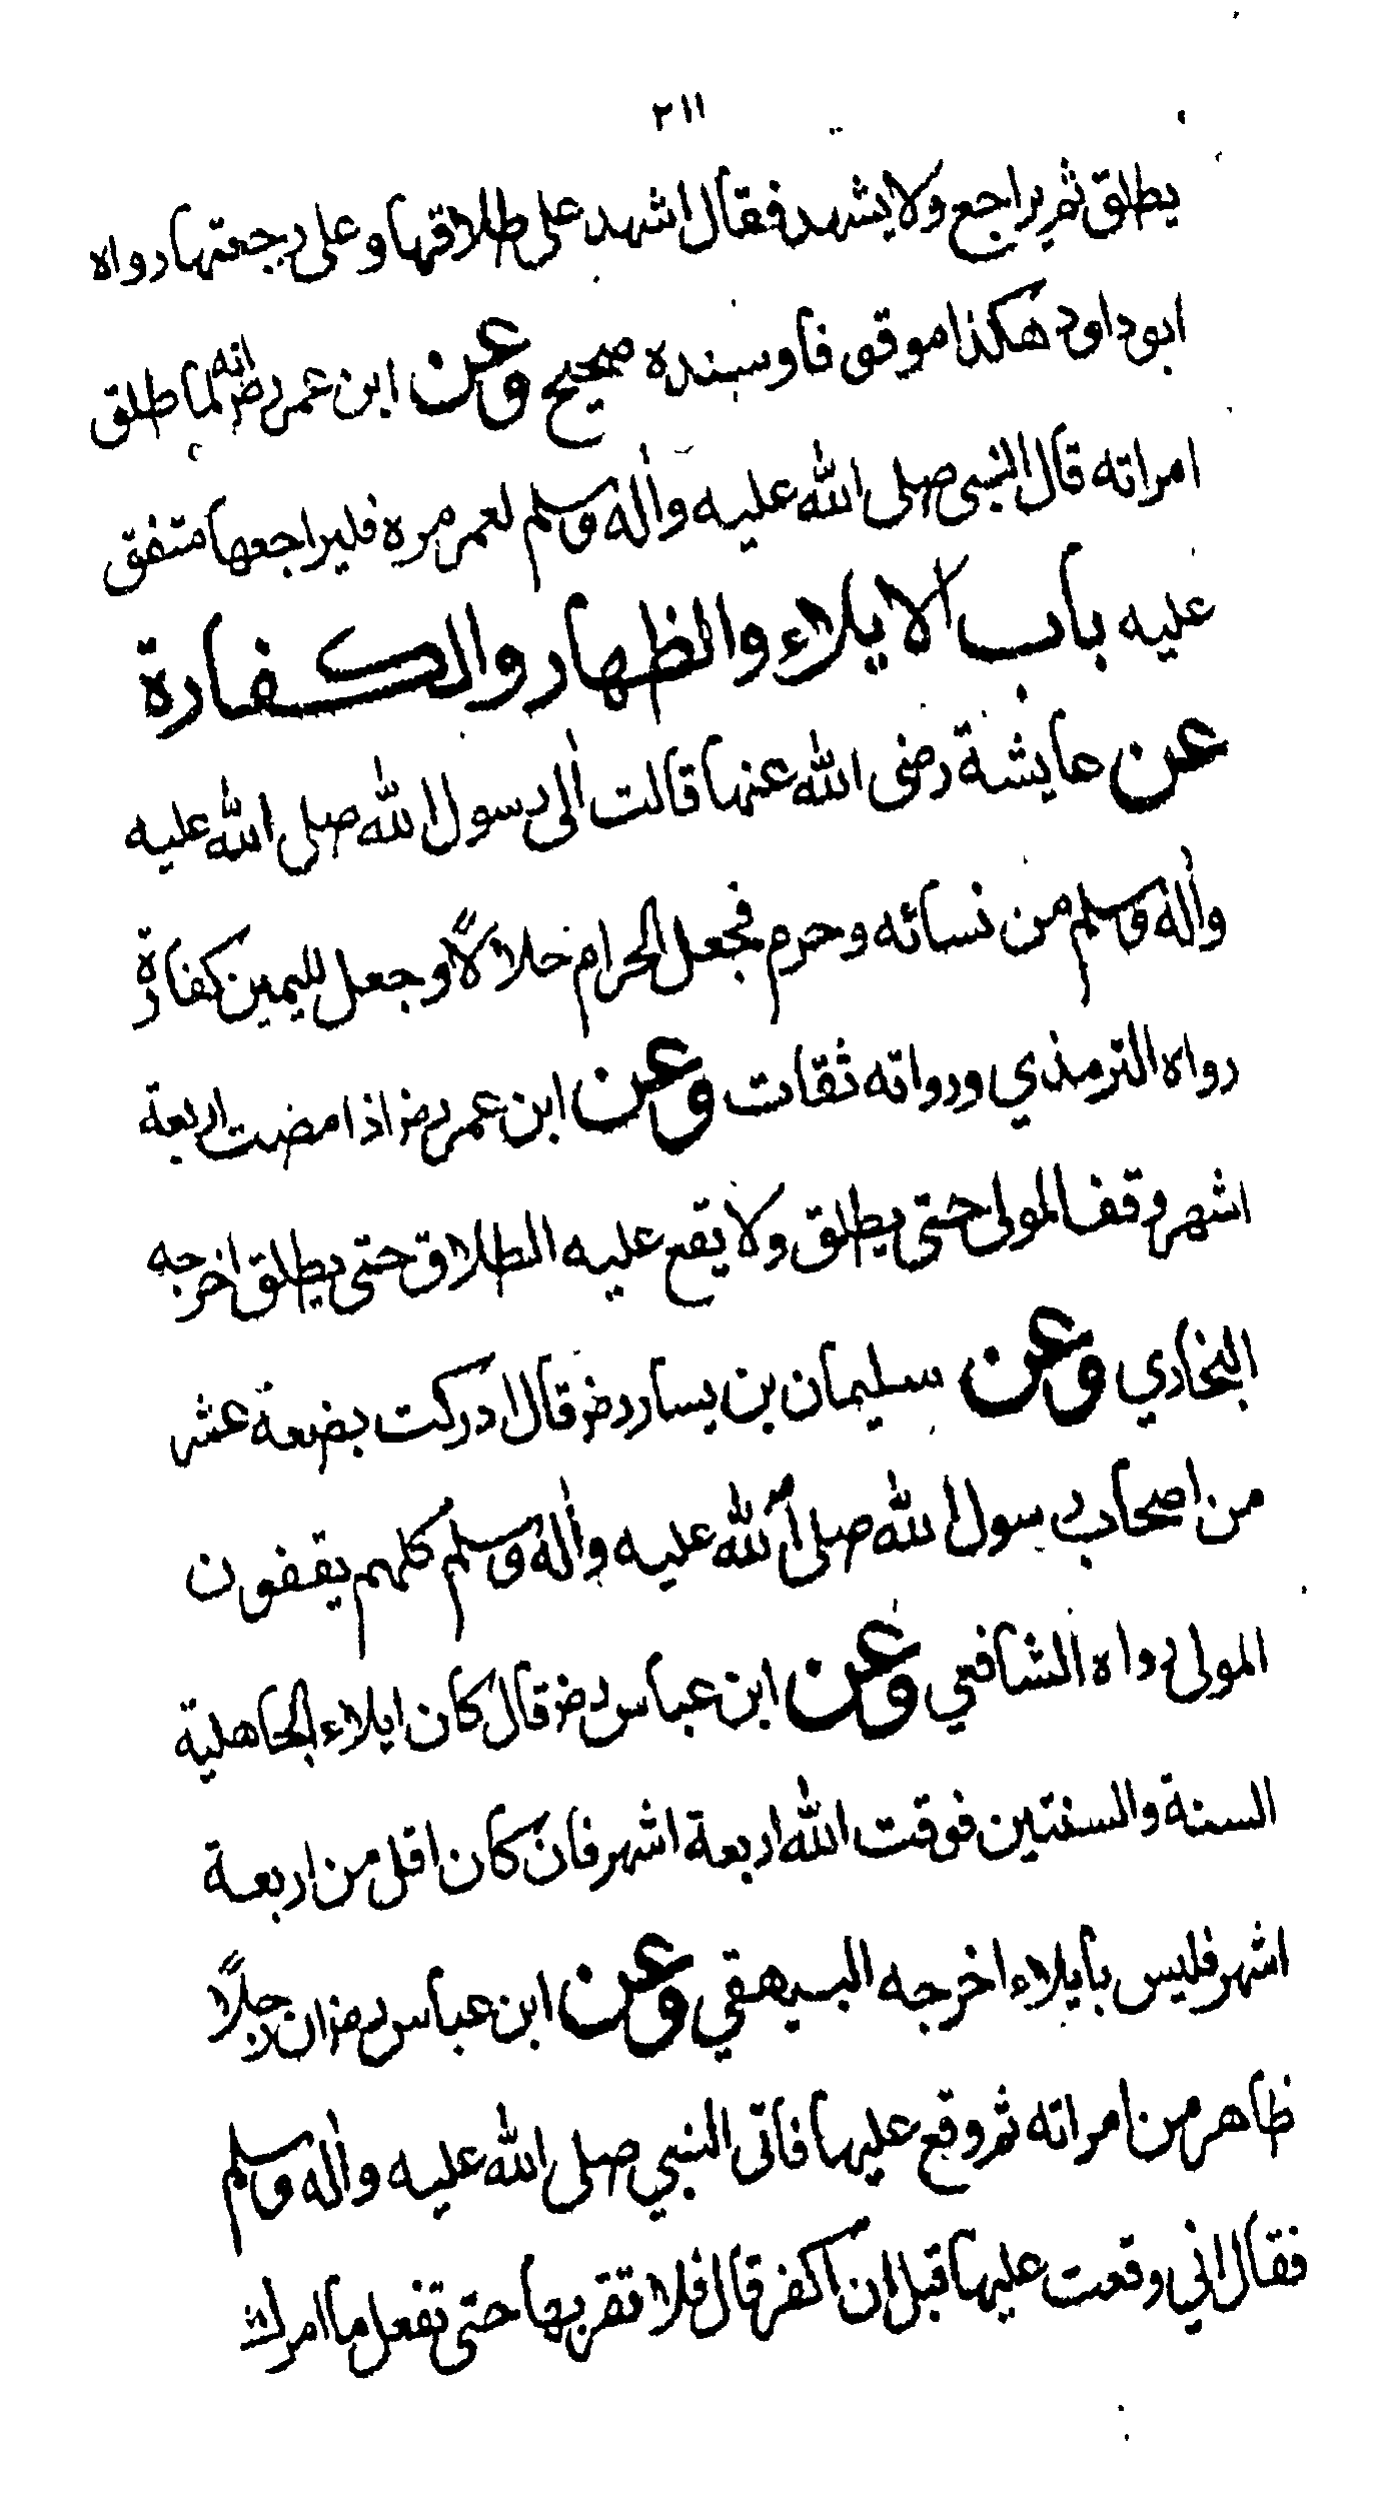 ٢١١
يطلق ثم يراجع ولا يشهد فقال اشهد على طلاقها وعلى رجعتها رواه
ابو داود هكذا موقوفا وسنده صحيح وعن ابن عمر رض انه لما طلق
امراته قال النبي صلى الله عليه واله وسلم لعمر مره فليراجعها متفق
عليه باب الايلاء والظهار والكفارة
عن عايشة رضى الله عنها قالت الى رسول الله صلى الله عليه
واله وسلم من نسائه وحرم فجعل الحرام حلالاً وجعل لليمين كفارة
رواه الترمذي ورواته ثقات وعن ابن عمر رض اذا مضت اربعة
اشهر وقف المولى حتى يطلق ولا يقع عليه الطلاق حتى يطلق اخرجه
البخاري وعن سليمان بن يسار رض قال ادركت بضعة عشر
من اصحاب رسول الله صلى الله عليه واله وسلم كلهم يقفون
المولى رواه الشافعي وعن ابن عباس رض قال كان ايلاء الجاهلية
السنة والسنتين فوقت الله اربعة اشهر فان كان اقل من اربعة
اشهر فليس بايلاء اخرجه البيهقي وعن ابن عباس رض ان رجلاً
ظاهر من امراته ثم وقع عليها فاتى النبي صلى الله عليه واله وسلم
فقال اني وقعت عليها قبل ان اكفر قال فلا تقربها حتى تفعل ما امرك